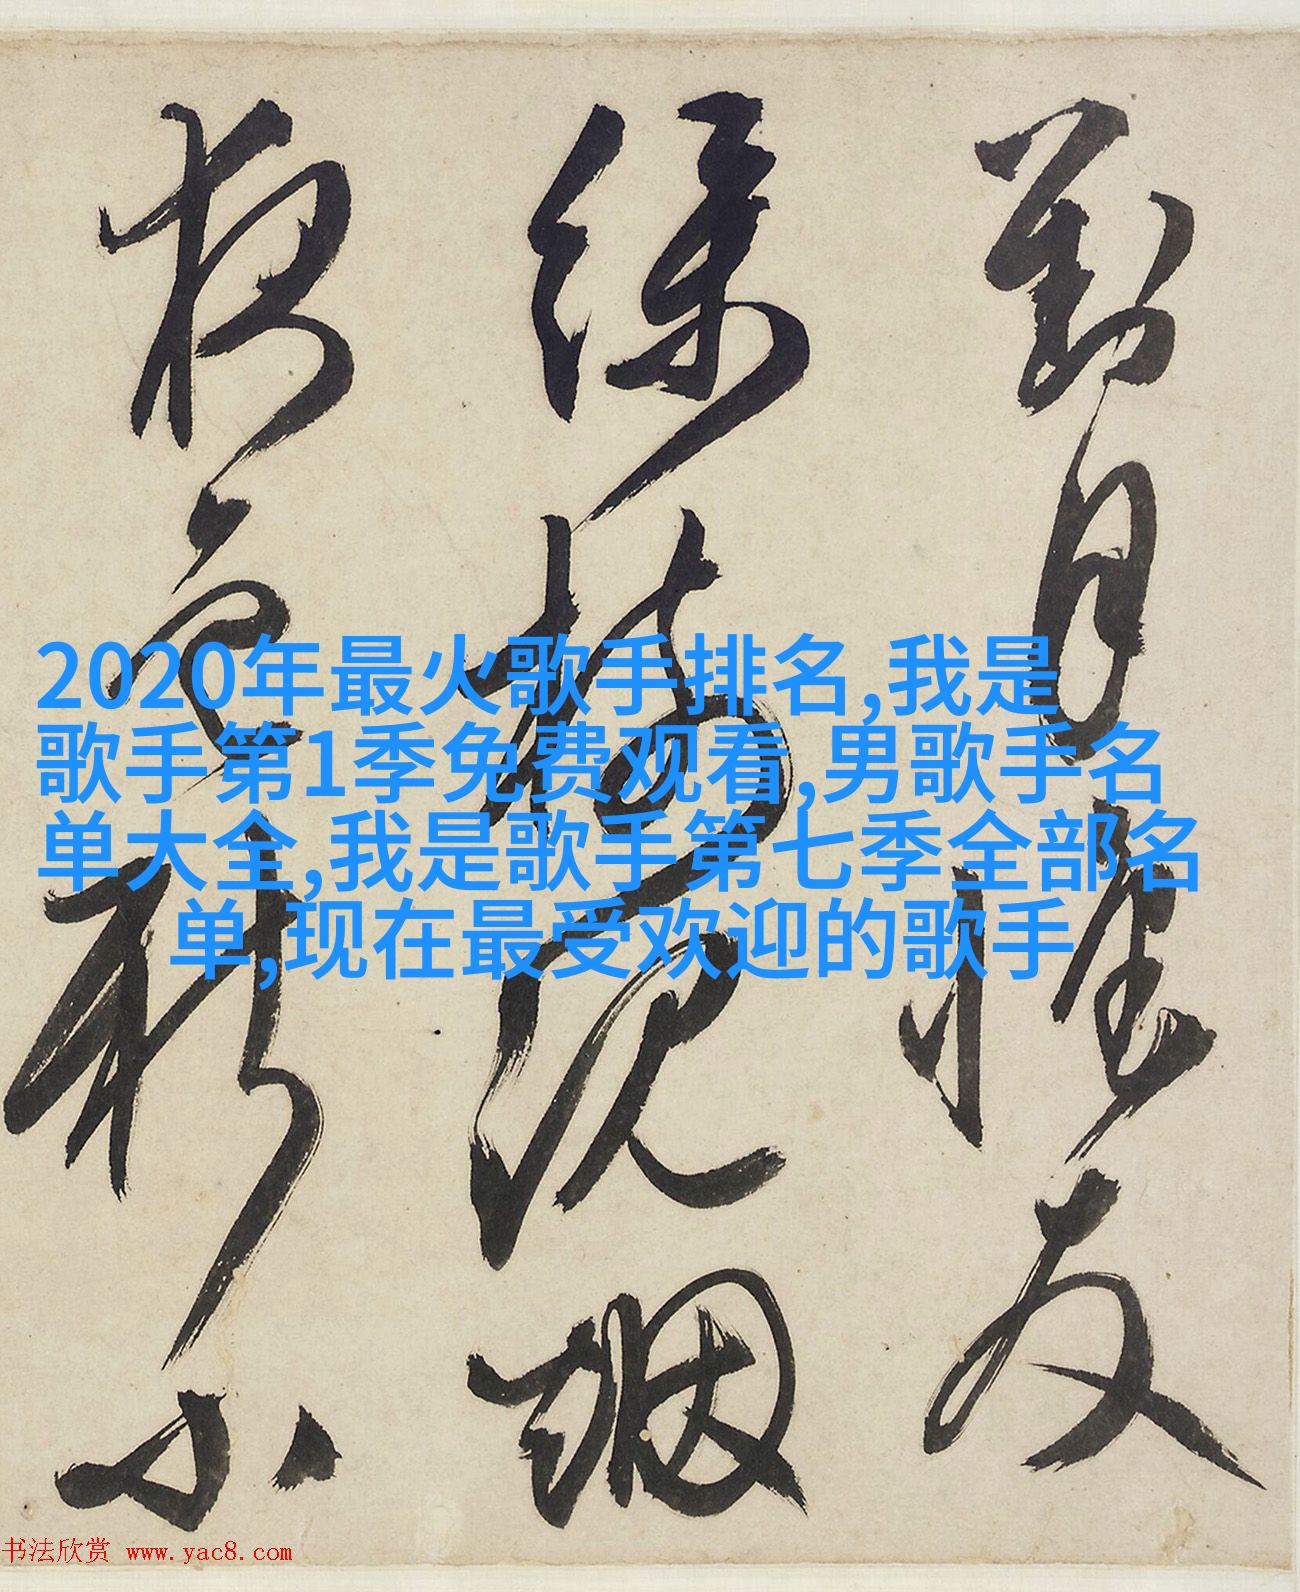 對月懷友
綠楊烟
夜色
2020年最火歌手排名,我是
歌手第1季免费观看,男歌手名
单大全,我是歌手第七季全部名
单,现在最受欢迎的歌手
书法欣赏 www.yac8.com